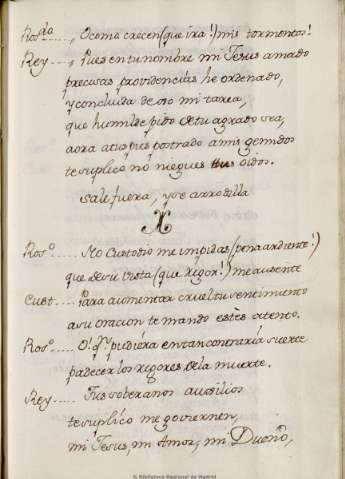 Ros.do ...., O como crecen (que ira!) mis tormentos!
Rey ...., Pues en tu nombre mi Jesus amado
precisas providencias he ordenado,
y concluida de oio mi tarea,
que humilde pido de tu agrado sea,
aora a tus pies postrado a mis gemidos
te suplico no niegues tus oidos.
Sale fuera, y se arrodilla
X
Ros.o ..... No Custodio me impidas (pena ardiente!)
que de su vista (que rigor!) me ausente
Cust.... Para aumentar cruel tu sentimiento
a su oracion te mando estès atento.
Ros.o .... O! qn pudiera en tan contraria suerte
padecer los rigores de la muerte.
Rey ..... Tus soberanos auxilios
te suplico me goviernen,
mi Jesus, mi Amor, mi Dueño,
© Biblioteca Nacional de Madrid